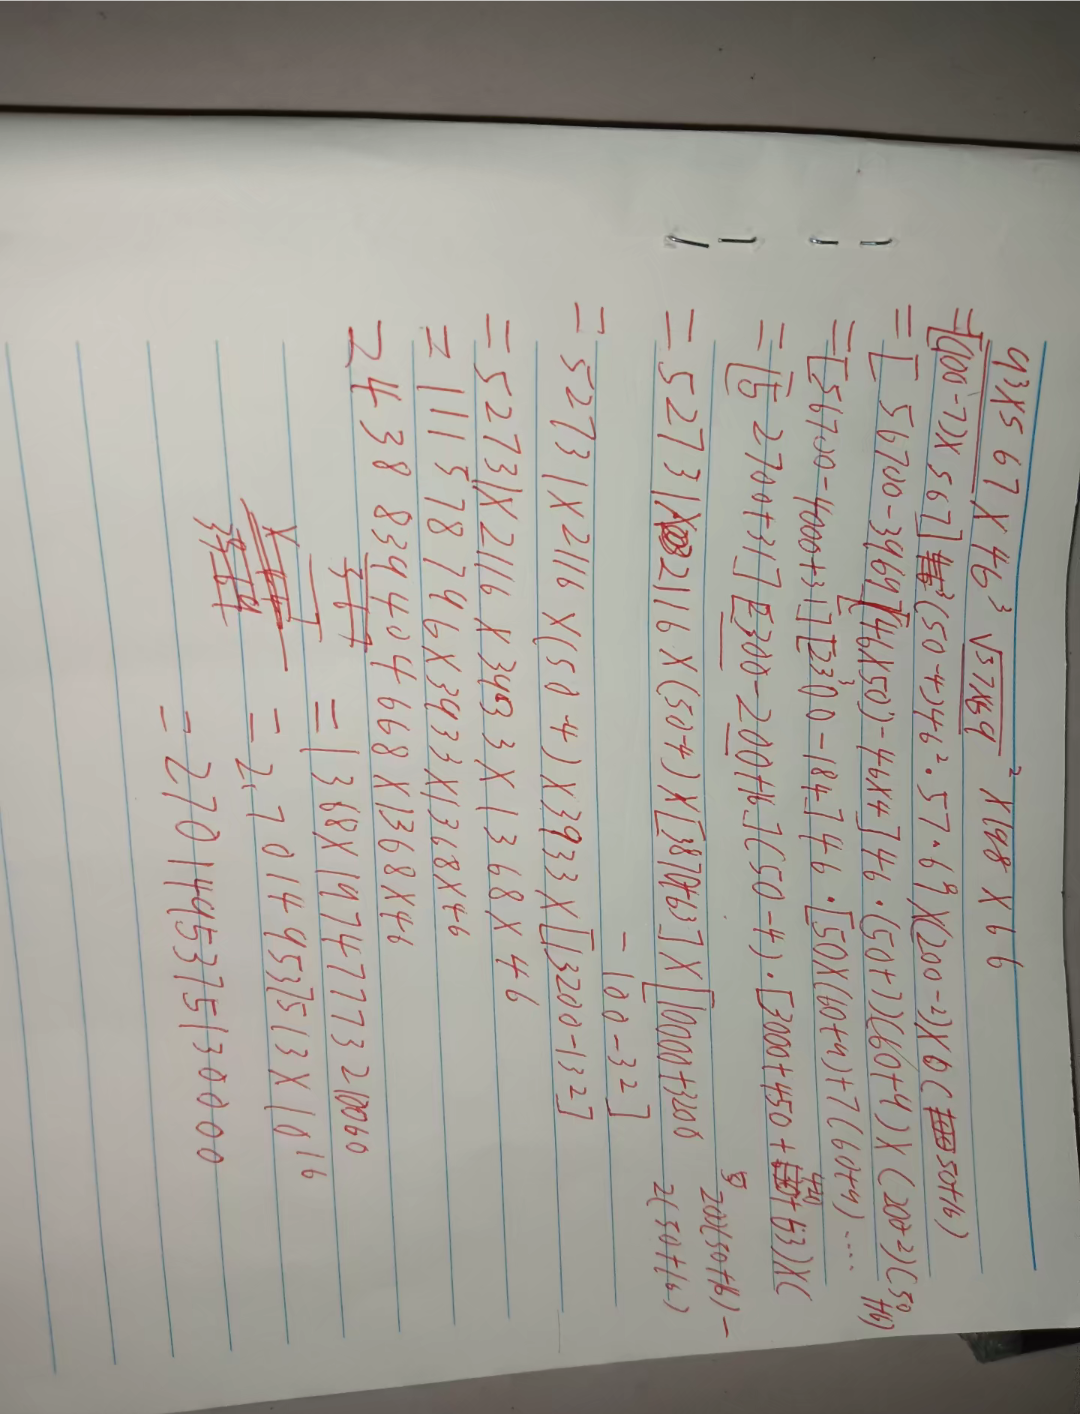 93×567×46³√57×69² ×198×66
=[(100-7)×567](50-4)46²·57·69×(200-2)×6(50+16)
=[56700-3969][46×50)-46×4]46·(50+7)(60+9)×(200+2)(50+16)
=[56700-4000+31][2300-184]46·[50×(60+9)+7(60+9)....
=[52700+31][2300-200+16](50-4)·[3000+450+420+63)×(
200(50+16)-
=52731×2116×(50-4)×[3870+63]×[10000+3200
2(50+16)
-100-32]
=52731×2116×(50-4)×3933×[13200-132]
=52731×2116×3933×1368×46
=111578796×3933×1368×46
2438839404668×1368×46
=1368×19747773210060
=2.701449537513×10¹⁶
=27014495375130000